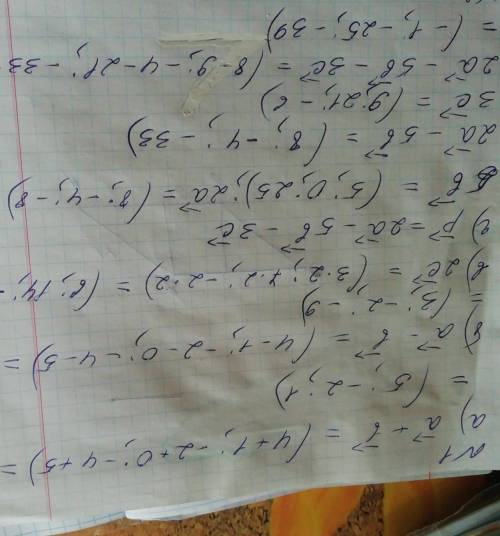 №1
а) a⃗ + b⃗ = (4+1; -2+0; -4+5) =
= (5; -2; 1)
б) a⃗ - b⃗ = (4-1; -2-0; -4-5) =
= (3; -2; -9)
в) 2c⃗ = (3·2; 7·2; -2·2) = (6; 14; -
г) p⃗ = 2a⃗ - 5b⃗ - 3c⃗
5b⃗ = (5; 0; 25); 2a⃗ = (8; -4; -8)
2a⃗ - 5b⃗ = (8; -4; -33)
3c⃗ = (9; 21; -6)
2a⃗ - 5b⃗ - 3c⃗ = (8-9; -4-21; -33
= (-1; -25; -39)